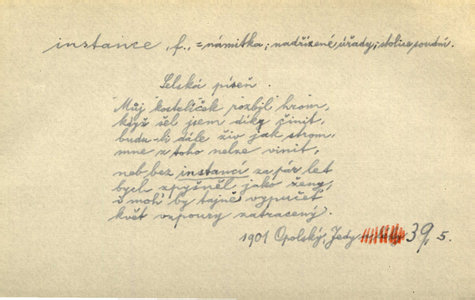 instance, f., = námitka; nadřízené úřady; stolice soudní.
Selská píseň.
Můj kostelíček rozbil hrom,
když šel jsem díky činit,
budu-li dále živ jak strom,
mne z toho nelze vinit,
neb bez instancí za pár let
bych zpyšněl jako ženy,
a moh' by tajně vypučet
květ vzpoury zatracený.
1901 Opolský, Jedy 39, 5.